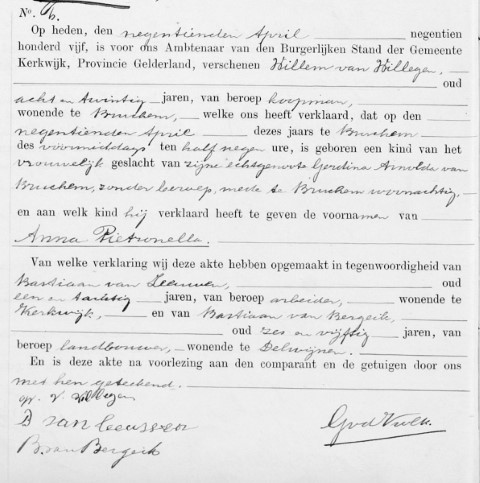 No. 6.
Op heden, den negentienden April negentien
honderd vijf, is voor ons Ambtenaar van den Burgerlijken Stand der Gemeente
Kerkwijk, Provincie Gelderland, verschenen Willem van Willegen,
oud
acht en twintig jaren, van beroep koopman,
wonende te Bruchem, welke ons heeft verklaard, dat op den
negentienden April dezes jaars te Bruchem
des voormiddags ten half negen ure, is geboren een kind van het
vrouwelijk geslacht van zijne echtgenoote Gerdina Arnolda van
Bruchem, zonder beroep, mede te Bruchem woonachtig,
en aan welk kind hij verklaard heeft te geven de voornamen van
Anna Pietronella.
Van welke verklaring wij deze akte hebben opgemaakt in tegenwoordigheid van
Bastiaan van Leeuwen, oud
een en jaren, van beroep arbeider, wonende te
Kerkwijk, en van Bastiaan van Bergeik,
oud zes en vijftig jaren, van
beroep landbouwer, wonende te Delwijnen.
En is deze akte na voorlezing aan den comparant en de getuigen door ons
met hen geteekend.
v Willegen
B van Leeuwen
B. van Bergeik